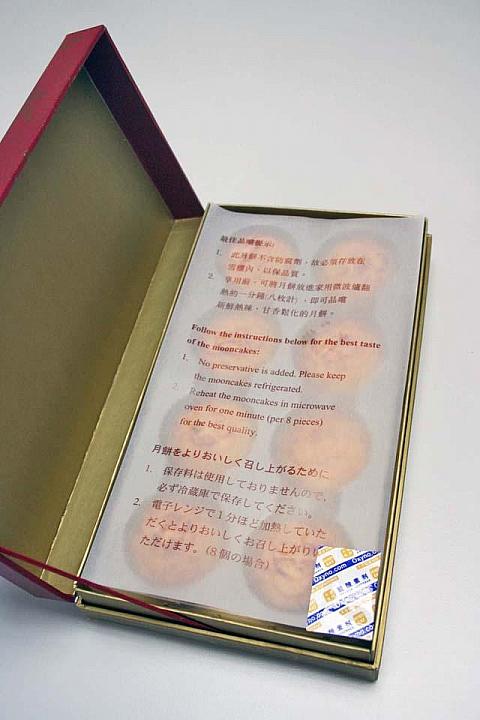 最佳品嚐提示:
1. 此月餅不含防腐劑，故必須存放在
雪櫃內，以保品質。
2. 享用前，可將月餅放進家用微波爐翻
熱約一分鐘(八枚計)，即可品嚐
新鮮熱辣，甘香鬆化的月餅。
Follow the instructions below for the best taste
of the mooncakes:
1. No preservative is added. Please keep
the mooncakes refrigerated.
2. Reheat the mooncakes in microwave
oven for one minute (per 8 pieces)
for the best quality.
月餅をよりおいしく召し上がるために
1. 保存料は使用しておりませんので、
必ず冷蔵庫で保存してください。
2. 電子レンジで1分ほど加熱していた
だくとよりおいしくお召し上がりい
ただけます。(8個の場合)
Oxyno.com